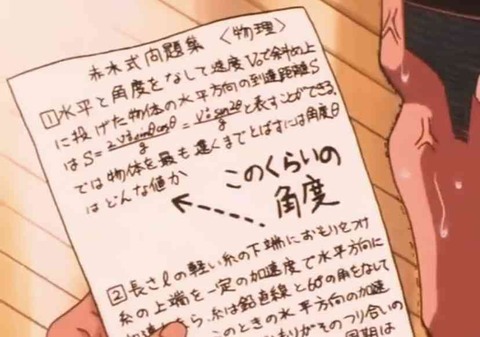 赤木式問題集 〈物理〉
1 水平と角度をなして速度V₀で斜め上
に投げた物体の水平方向の到達距離S
はS=2V₀²sinθcosθ/g=V₀²sin2θ/gと表すことができる。
では物体を最も遠くまでとばすには角度θ
はどんな値か
このくらいの
角度
2 長さlの軽い糸の下端におもりをつけ
糸の上端を一定の加速度で水平方向に
糸は鉛直線と60°の角をなして
このときの水平方向の加速
がそのつり合いの
周期は